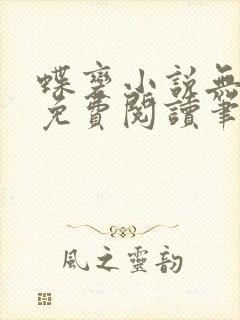 蝶變小說無
免費閱讀筆
風之靈韵